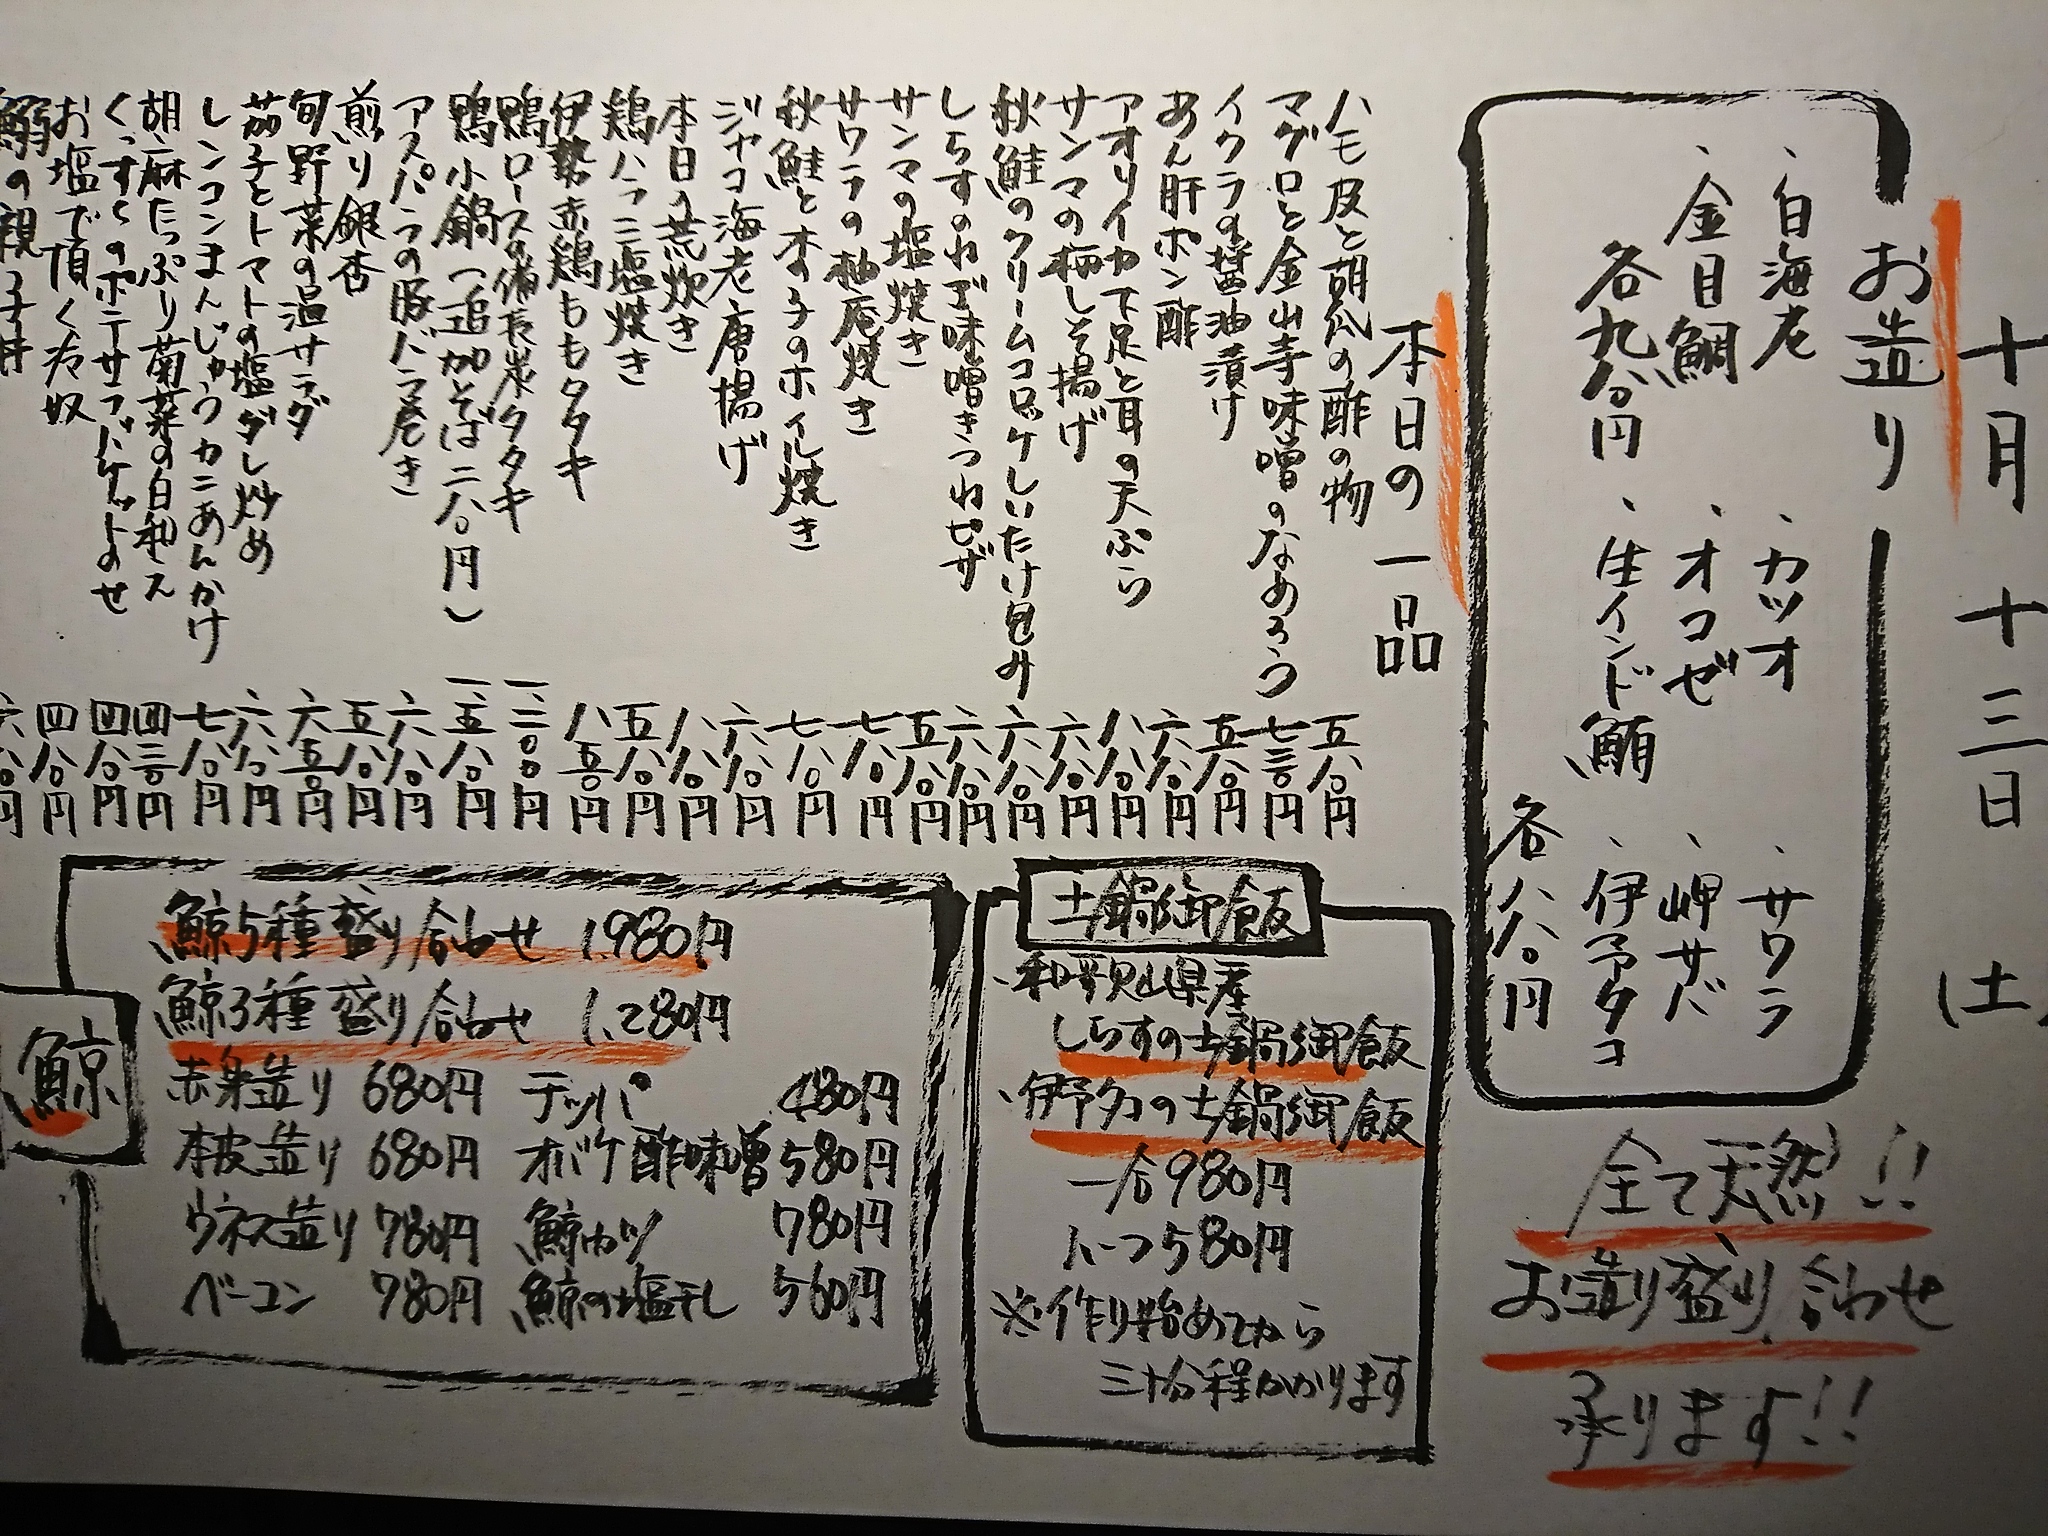 十月十三日(土)
お造り
、白海老
、金目鯛
各九八〇円
、カツオ
、オコゼ
、生インド鮪
、サワラ
、岬サバ
、伊予タコ
各八八〇円
全て天然!!
お造り盛り合わせ
承ります!!
本日の一品
ハモ皮と胡瓜の酢の物 五八〇円
マグロと金山寺味噌のなめろう 七三〇円
イクラの醤油漬け 五八〇円
あん肝ポン酢 六八〇円
アオリイカ下足と耳の天ぷら 八八〇円
サンマの梅しそ揚げ 六八〇円
秋鮭のクリームコロッケしいたけ包み 六八〇円
しらすのねぎ味噌きつねピザ 六八〇円
サンマの塩焼き 五八〇円
サワラの柚庵焼き 七八〇円
秋鮭と木の子のホイル焼き 七八〇円
ジャコ海老唐揚げ 六八〇円
本日の荒炊き 八八〇円
鶏ハラミ塩焼き 五八〇円
伊勢赤鶏ももタタキ 八五〇円
鴨ロースの備長炭タタキ 一、二〇〇円
鴨小鍋(追加そば二八〇円) 一、五八〇円
アスパラの豚バラ巻き 六八〇円
煎り銀杏 五八〇円
旬野菜の温サラダ 六五〇円
茄子とトマトの塩ダレ炒め 六八〇円
レンコンまんじゅうカニあんかけ 七八〇円
胡麻たっぷり菊菜の白和え 四三〇円
くっすくのポテサラバゲットのせ 四八〇円
お塩で頂く冷奴 四八〇円
鰯の親子丼 六八〇円
土鍋御飯
、和歌山県産
しらすの土鍋御飯
、伊予タコの土鍋御飯
一合980円
ハーフ580円
※作り始めてから
三十分程かかります
鯨
鯨5種盛り合わせ 1,980円
鯨3種盛り合わせ 1,280円
赤身造り 680円 テッパ 480円
本皮造り 680円 オバケ酢味噌 580円
ウネス造り 780円 鯨カツ 780円
ベーコン 780円 鯨の塩干し 560円